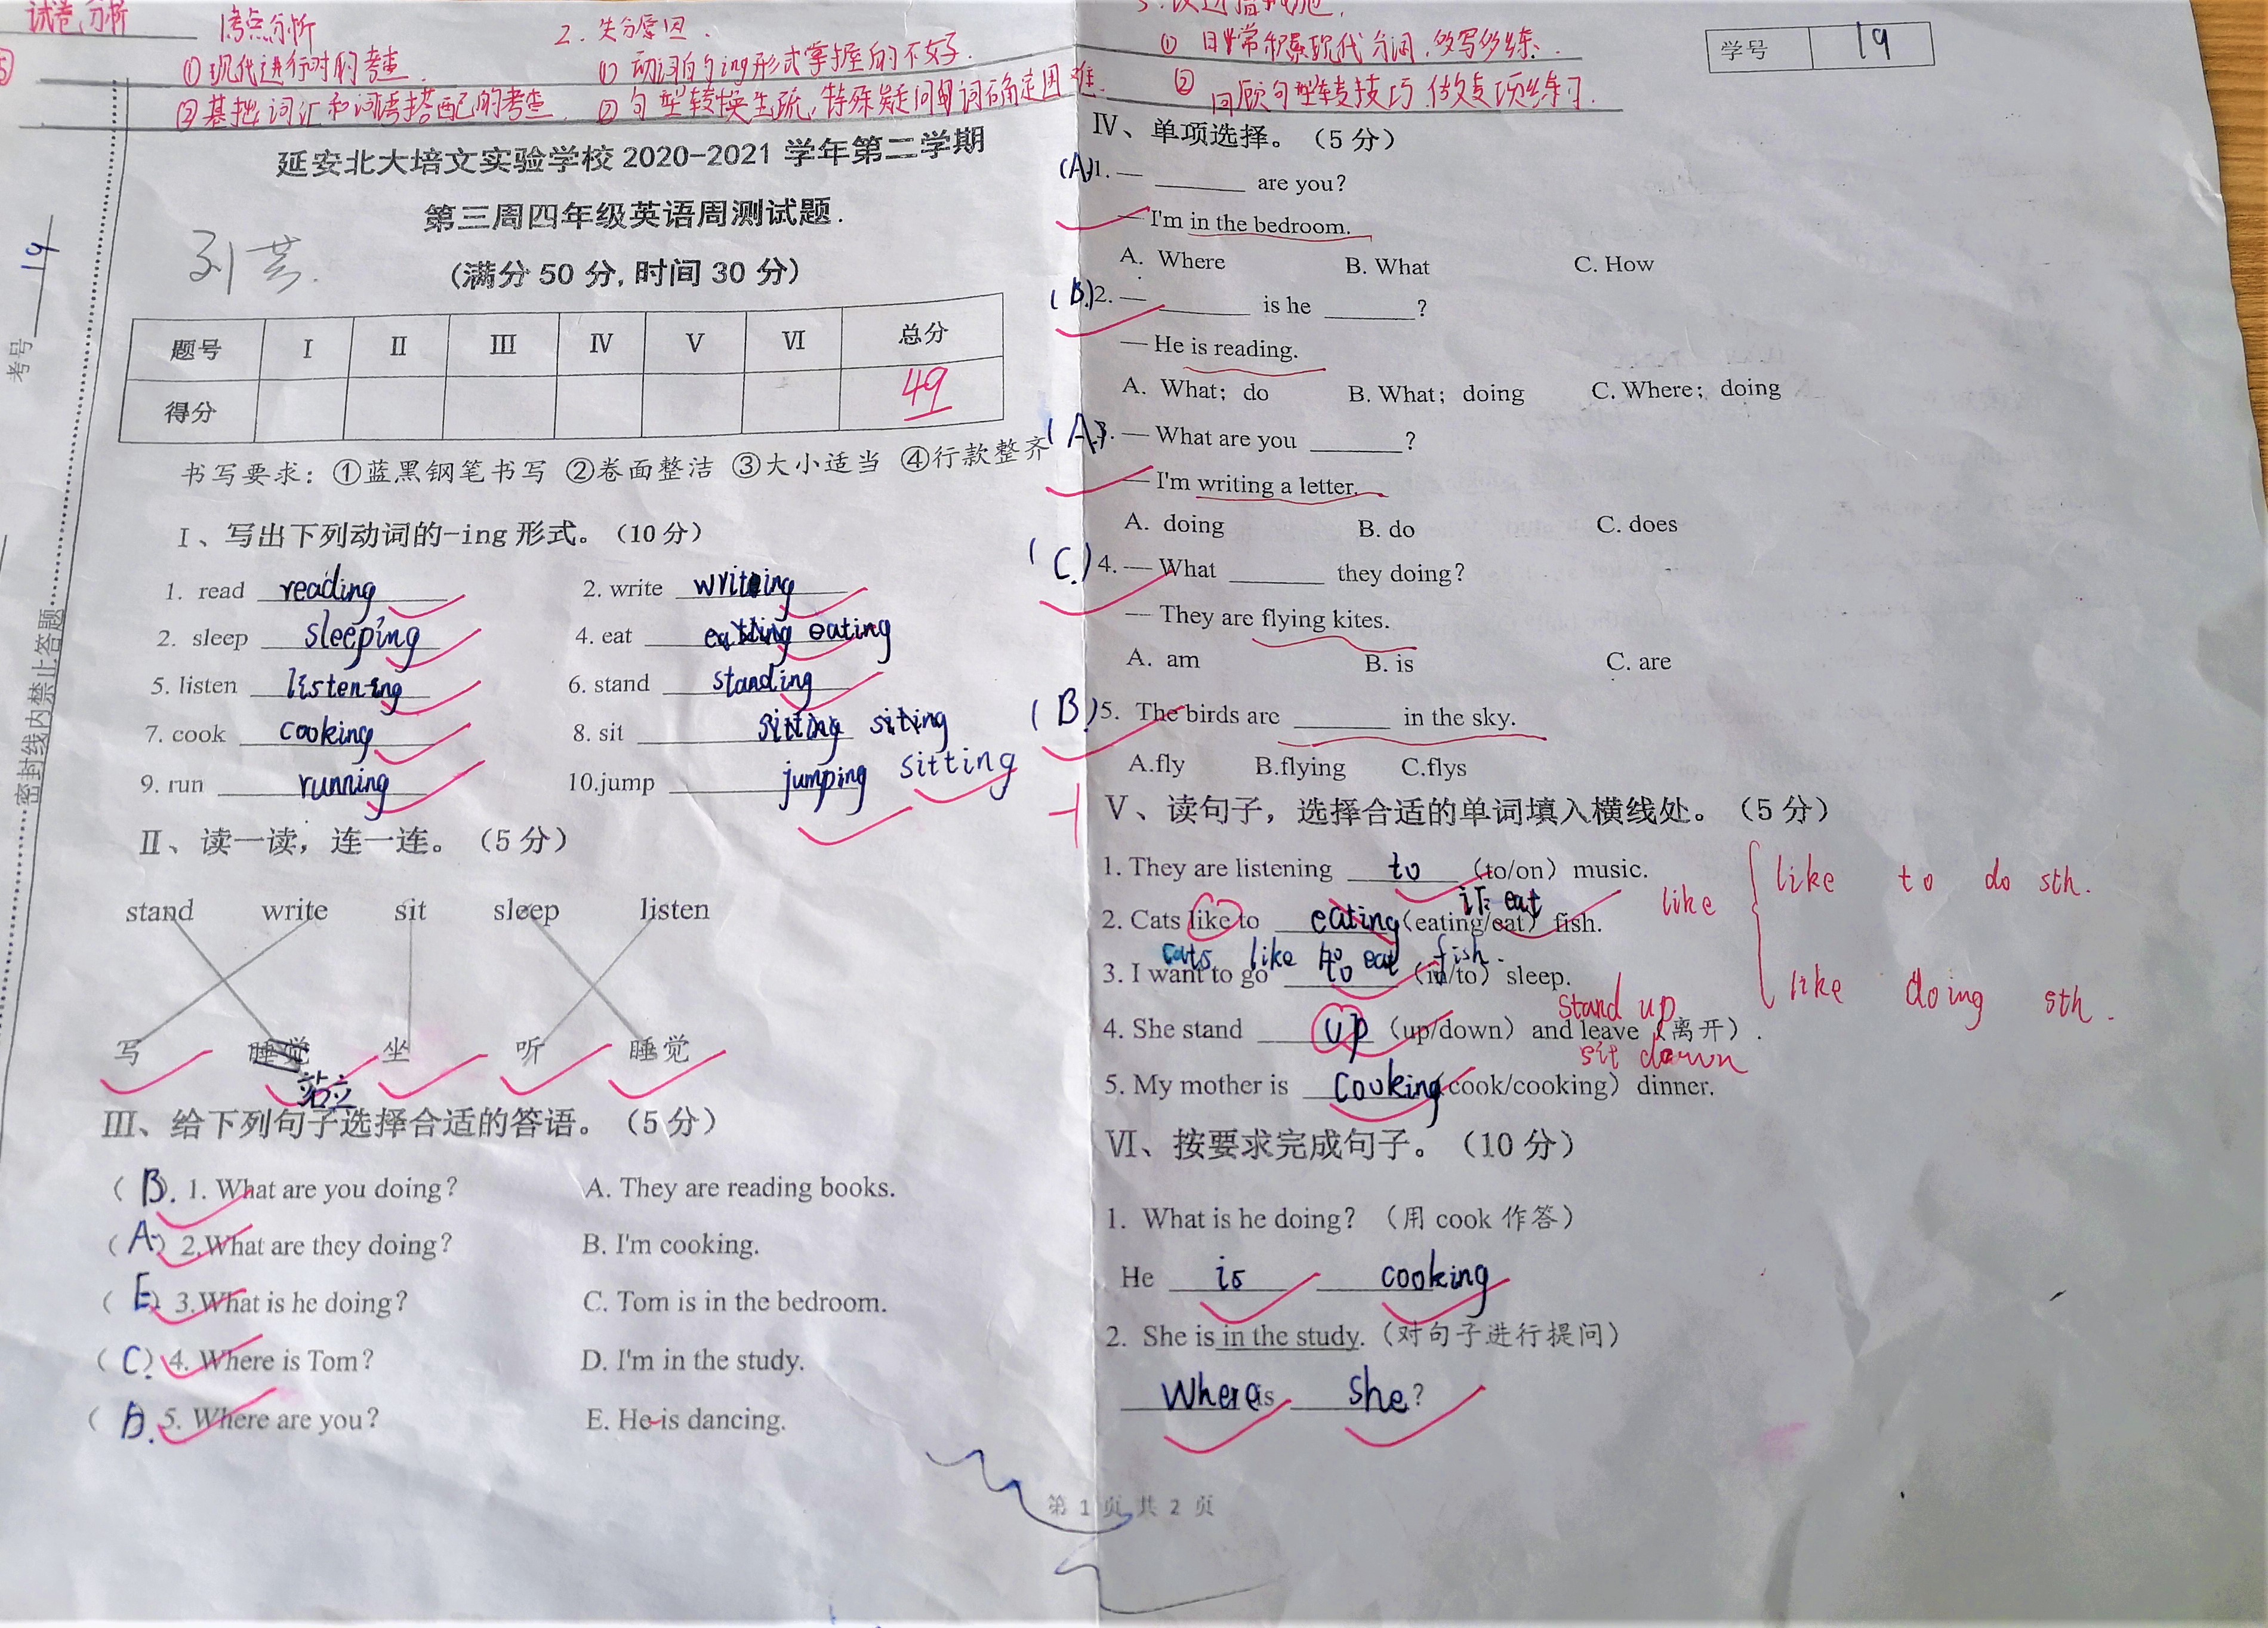 试卷分析
考点分析
①现代进行时的考查.
②基础词汇和词语搭配的考查.
2. 失分原因.
① 动词的ing形式掌握的不好.
② 句型转换生疏,特殊疑问词确定困难.
① 日常积累现代分词,多写多练.
② 回顾句型转技巧,做专项练习.
学号 19
考号 19
密封线内禁止答题
延安北大培文实验学校 2020-2021 学年第二学期
第三周四年级英语周测试题.
(满分 50 分,时间 30 分)
题号 I II III IV V VI 总分
得分 49
书写要求: ①蓝黑钢笔书写 ②卷面整洁 ③大小适当 ④行款整齐
I、写出下列动词的-ing 形式。(10 分)
1. read reading 2. write writing
2. sleep sleeping 4. eat eating eating
5. listen listening 6. stand standing
7. cook cooking 8. sit sitting siting
sitting
9. run running 10.jump jumping
II、读一读，连一连。(5 分)
stand write sit sleep listen
写 睡觉 坐 听 睡觉
站立
III、给下列句子选择合适的答语。(5 分)
( B. 1. What are you doing? A. They are reading books.
( A ) 2.What are they doing? B. I'm cooking.
( E ) 3.What is he doing? C. Tom is in the bedroom.
( C ) 4. Where is Tom? D. I'm in the study.
( D. 5. Where are you? E. He is dancing.
IV、单项选择。(5 分)
(A)1. — ______ are you?
— I'm in the bedroom.
A. Where B. What C. How
(B)2. — ______ is he ______?
— He is reading.
A. What; do B. What; doing C. Where; doing
(A)3. — What are you ______?
— I'm writing a letter.
A. doing B. do C. does
(C)4. — What ______ they doing?
— They are flying kites.
A. am B. is C. are
(B)5. The birds are ______ in the sky.
A.fly B.flying C.flys
V、读句子，选择合适的单词填入横线处。(5 分)
1. They are listening to (to/on) music.
正: eat
2. Cats like to eating (eating/eat) fish.
cats like to eat fish.
3. I want to go to (in/to) sleep.
4. She stand up (up/down) and leave (离开).
stand up
sit down
5. My mother is cooking (cook/cooking) dinner.
like
like to do sth.
like doing sth.
VI、按要求完成句子。(10 分)
1. What is he doing? (用 cook 作答)
He is cooking
2. She is in the study. (对句子进行提问)
Where is she?
第 1 页 共 2 页